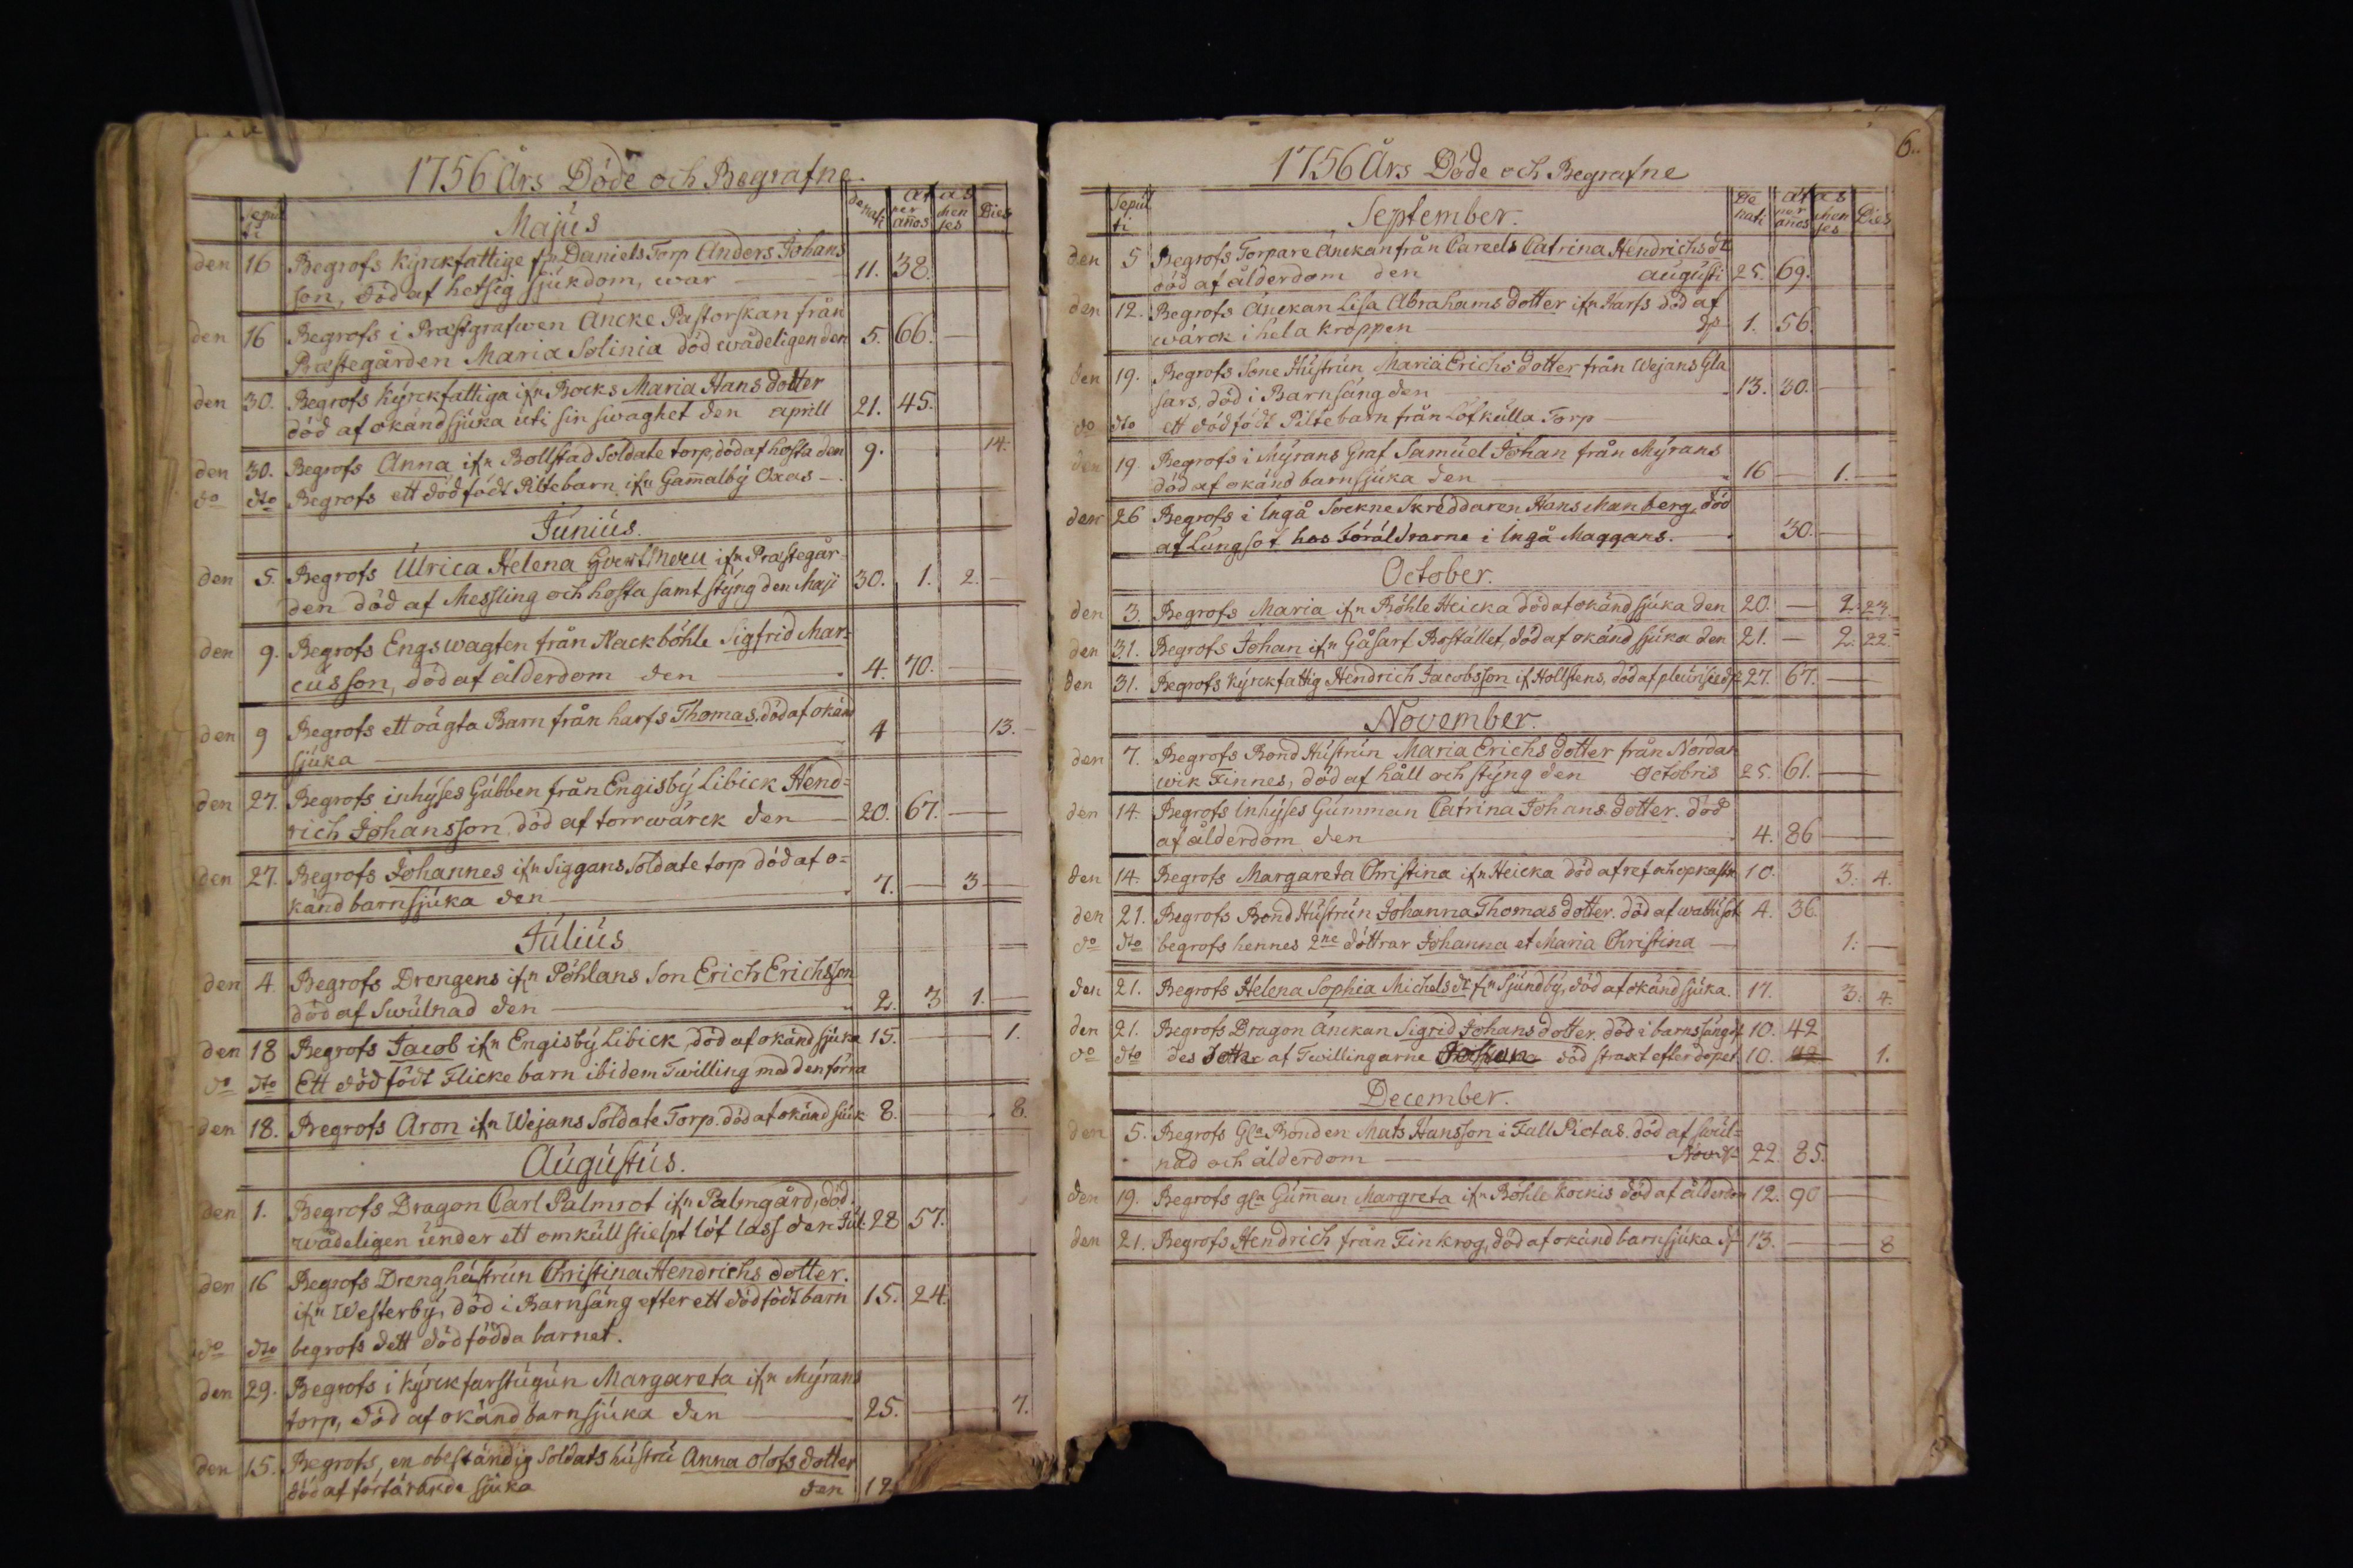 1756 Års Döde och Begrafne
Sepul
ti
Majus
denati
Ætas
per
años
men
ses
Dies
den 16 Begrofs Kyrckfattige fr Daniels Torp Anders Johans
son, död af hetsig sjukdom, war 11. 38.
den 16 Begrofs i Prästgrafwen Äncke Pastorskan från
Prästegården Maria Solinia död wådeligen den 5. 66.
den 30. Begrofs Kyrckfattiga ifrn Bocks Maria Hans dotter
död af okänd sjuka uti sin swaghet den aprill 21. 45.
den 30. Begrofs Anna ifrn Bollstad Soldate torp, död af hosta den 9. 14.
do dto Begrofs ett dödfödt Piltebarn ifrn Gam̃alby Oxas
Junius.
den 5. Begrofs Ulrica Helena ifrn Prästegår
den död af Messling och hosta samt styng den Maji 30. 1. 2.
den 9. Begrofs Engswagten från Nackböhle Sigfrid Mar=
cusson, död af ålderdom den 4. 70.
den 9 Begrofs ett oägta Barn från harfs Thomas, död af okänd
sjuka 4 13.
den 27. Begrofs inhyses Gubben från Engisby Libick Hend=
rich Johansson, död af torrwärck den 20. 67.
den 27. Begrofs Johannes ifrn Siggans Soldate torp död af o=
känd barnsjuka den 7. 3
Julius
den 4 Begrofs Drengens ifrn Pöhlans Son Erich Erichsson
död af Swulnad den 2. 3 1.
den 18 Begrofs Jacob ifrn Engisby Libick, död af okänd sjuka 15. 1.
do dto Ett dödfödt Flickebarn ibidem Twilling med den förra
den 18. Begrofs Aron ifrn Wejans Soldate Torp. död af okänd siuk 8. 8.
Augustus.
den 1. Begrofs Dragon Carl Palmrot ifrn Palmgård, död
wådeligen under ett omkull stielpt löf lass den Jul: 28 57.
den 16 Begrofs Drenghustrun Christina Hendrichs dotter.
ifrn Westerby, död i Barnsäng efter ett dödfödt barn 15. 24.
do dto begrofs dett dödfödda barnet.
den 29. Begrofs i Kyrckfarstugun Margareta ifrn Myrans
torp, död af okänd barnsjuka den 25. 7.
den 15. Begrofs, en obeständig Soldats hustru Anna Olofs dotter
död af förtärande sjuka den 12
6..
1756 Års Döde och Begrafne
Sepul
ti
September.
De
nati
Ætas
per
años
men
ses
Dies
den 5 Begrofs Torpare Änckan från Careels Catrina Hendrichs dt
död af ålderdom den augusti 25. 69.
den 12. Begrofs Änckan Lisa Abrahams dotter ifrn Harfs död af
wärck i hela kroppen 1. 56.
den 19. Begrofs Sone Hustrun Maria Erichs dotter från Wejans Gla
sars, död i Barnsäng den 13. 30.
do dto ett dödfödt Piltebarn från Löfkulla Torp
den 19 Begrofs i Myrans Graf Samuel Johan från Myrans
död af okänd barnsjuka den 16 1.
den 26 Begrofs i Ingå Sockne Skräddaren Hans Manberg, död
af Lungsot hos Föräldrarne i Ingå Maggans. 30.
October.
den 3. Begrofs Maria ifrn Böhle Heicka död af okänd sjuka den 20 2. 23.
den 31. Begrofs Johan ifrn Gåsarf Bostället, död af okänd sjuka den 21. 2. 22.
den 31. Begrofs Kyrckfattig Hendrich Jacobsson if Hollstens, död af pleurisie d 27. 67.
November.
den 7. Begrofs Bond Hustrun Maria Erichs dotter från Nordan
wik Finnes, död af håll och styng den Octobris 25. 61.
den 14. Begrofs Inhyses Gumman Catrina Johans dotter. död
af ålderdom den 4. 86
den 14. Begrofs Margareta Christina ifrn Heicka död af ref 10. 3. 4.
den 21. Begrofs Bond Hustrun Johanna Thomas dotter. död af wattusot 4. 36.
do dto begrofs hennes 2ne döttrar Johanna et Maria Christina 1.
den 21. Begrofs Helena Sophia Michels dt frn Sjundby, död af okänd sjuka. 17. 3. 4.
den 21. Begrofs Dragon Änckan Sigrid Johans dotter. död i barnssäng 10. 42
do dto des dotter af Twillingarne död straxt efter dopet 10. 42 1.
December.
den 5. Begrofs Gla Bonden Mats Hansson i Fall Pictas. död af swul=
nad och ålderdom Nov 22. 85.
den 19. Begrofs gla Gum̃an Margreta ifrn Böhle Kockis död af ålderdom 12. 90
den 21. Begrofs Hendrich från Finkrog, död af okänd barnsjuka d 13. 8